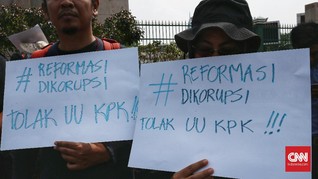 # REFORMASI
DIKORUPSI
TOLAK UU KPK!!!
# REFORMASI
DIKORUPSI
TOLAK UU KPK !!!
CNN
Indonesia